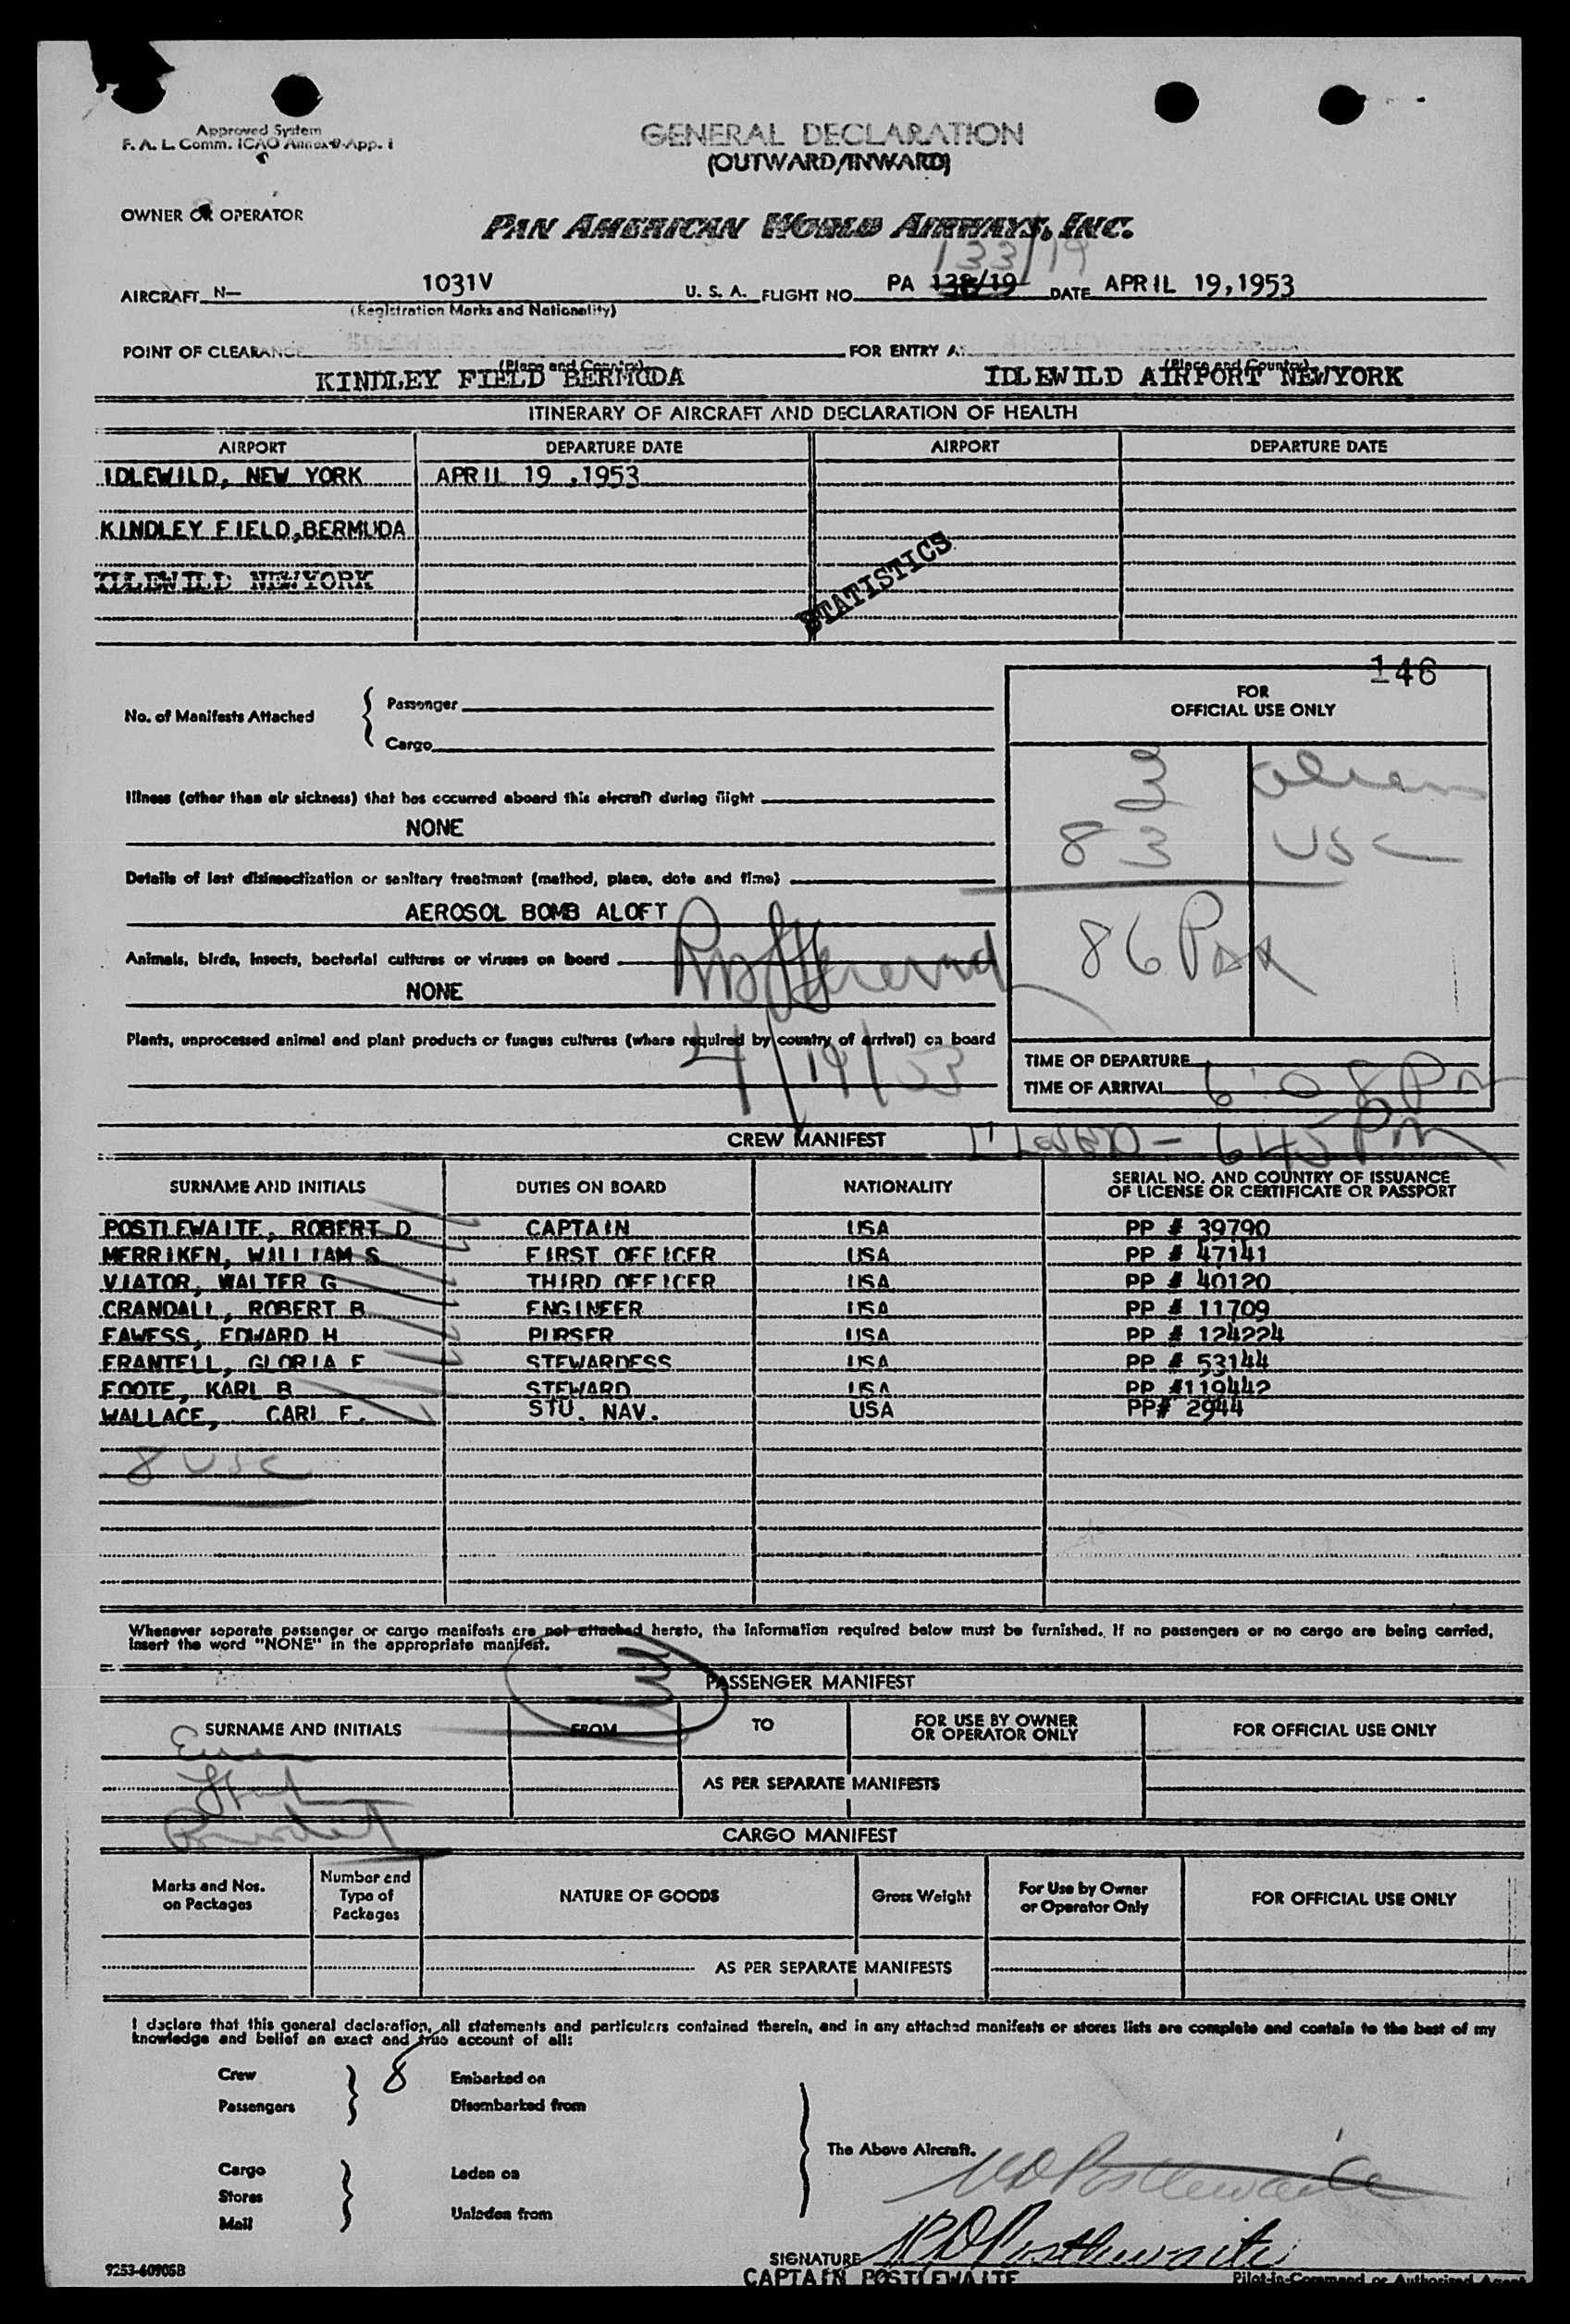 Approved System
F. A. L. Comm. ICAO Annex 9-App. 1
GENERAL DECLARATION
(OUTWARD/INWARD)
OWNER OR OPERATOR
PAN AMERICAN WORLD AIRWAYS, INC.
133/19
AIRCRAFT N— 1031V U. S. A. FLIGHT NO. PA 138/19 DATE APRIL 19,1953
(Registration Marks and Nationality)
POINT OF CLEARANCE FOR ENTRY AT
(Place and Country) (Place and Country)
KINDLEY FIELD BERMUDA IDLEWILD AIRPORT NEWYORK
ITINERARY OF AIRCRAFT AND DECLARATION OF HEALTH
AIRPORT DEPARTURE DATE AIRPORT DEPARTURE DATE
IDLEWILD, NEW YORK APRIL 19 ,1953
KINDLEY FIELD,BERMUDA
IDLEWILD NEWYORK
STATISTICS
146
No. of Manifests Attached { Passenger
Cargo
FOR
OFFICIAL USE ONLY
3 Alien
83 USC
86 Pax
Illness (other than air sickness) that has occurred aboard this aircraft during flight
NONE
Details of last disinsectization or sanitary treatment (method, place, date and time)
AEROSOL BOMB ALOFT
Animals, birds, insects, bacterial cultures or viruses on board
NONE
Plants, unprocessed animal and plant products or fungus cultures (where required by country of arrival) on board
4/19/53
TIME OF DEPARTURE
TIME OF ARRIVAL 6:08 PM
645 PM
CREW MANIFEST
SURNAME AND INITIALS DUTIES ON BOARD NATIONALITY SERIAL NO. AND COUNTRY OF ISSUANCE
OF LICENSE OR CERTIFICATE OR PASSPORT
POSTLEWAITE, ROBERT D CAPTAIN USA PP # 39790
MERRIKEN, WILLIAM S FIRST OFFICER USA PP # 47141
VIATOR, WALTER G THIRD OFFICER USA PP # 40120
CRANDALL, ROBERT B ENGINEER USA PP # 11709
FAWESS, EDWARD H PURSER USA PP # 124224
FRANTELL, GLORIA E STEWARDESS USA PP # 53144
FOOTE, KARL B STEWARD USA PP #119442
WALLACE, CARL F. STU. NAV. USA PP# 2944
8 USC
Whenever separate passenger or cargo manifests are not attached hereto, the information required below must be furnished. If no passengers or no cargo are being carried,
insert the word "NONE" in the appropriate manifest.
3
PASSENGER MANIFEST
SURNAME AND INITIALS FROM TO FOR USE BY OWNER
OR OPERATOR ONLY FOR OFFICIAL USE ONLY
AS PER SEPARATE MANIFESTS
CARGO MANIFEST
Marks and Nos.
on Packages Number and
Type of
Packages NATURE OF GOODS Gross Weight For Use by Owner
or Operator Only FOR OFFICIAL USE ONLY
AS PER SEPARATE MANIFESTS
I declare that this general declaration, all statements and particulars contained therein, and in any attached manifests or stores lists are complete and contain to the best of my
knowledge and belief an exact and true account of all:
Crew 8 Embarked on
Passengers Disembarked from
The Above Aircraft.
Cargo Laden on
Stores
Mail Unladen from
RD Postlewaite
SIGNATURE RD Postlewaite
CAPTAIN POSTLEWAITE Pilot-in-Command or Authorized Agent
9253-60905B